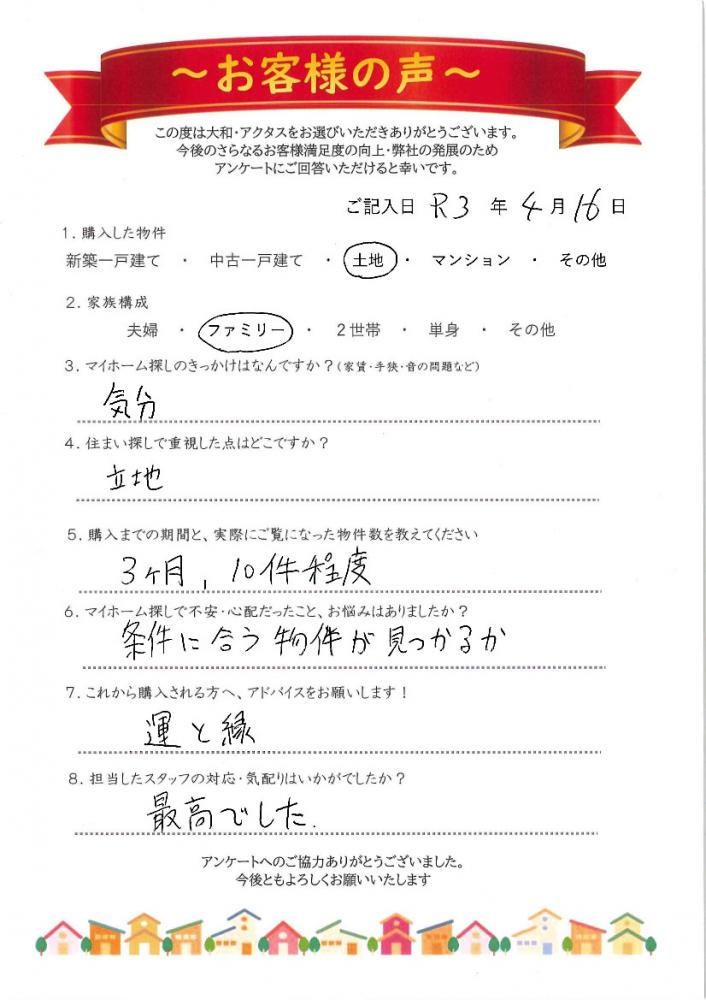 ～お客様の声～
この度は大和・アクタスをお選びいただきありがとうございます。
今後のさらなるお客様満足度の向上・弊社の発展のため
アンケートにご回答いただけると幸いです。
ご記入日 R3 年 4 月 16 日
1. 購入した物件
新築一戸建て ・ 中古一戸建て ・ 土地 ・ マンション ・ その他
2. 家族構成
夫婦 ・ ファミリー ・ 2世帯 ・ 単身 ・ その他
3. マイホーム探しのきっかけはなんですか？(家賃・手狭・音の問題など)
気分
4. 住まい探しで重視した点はどこですか？
立地
5. 購入までの期間と、実際にご覧になった物件数を教えてください
3ヶ月, 10件程度
6. マイホーム探しで不安・心配だったこと、お悩みはありましたか？
条件に合う物件が見つかるか
7. これから購入される方へ、アドバイスをお願いします！
運と縁
8. 担当したスタッフの対応・気配りはいかがでしたか？
最高でした.
アンケートへのご協力ありがとうございました。
今後ともよろしくお願いいたします